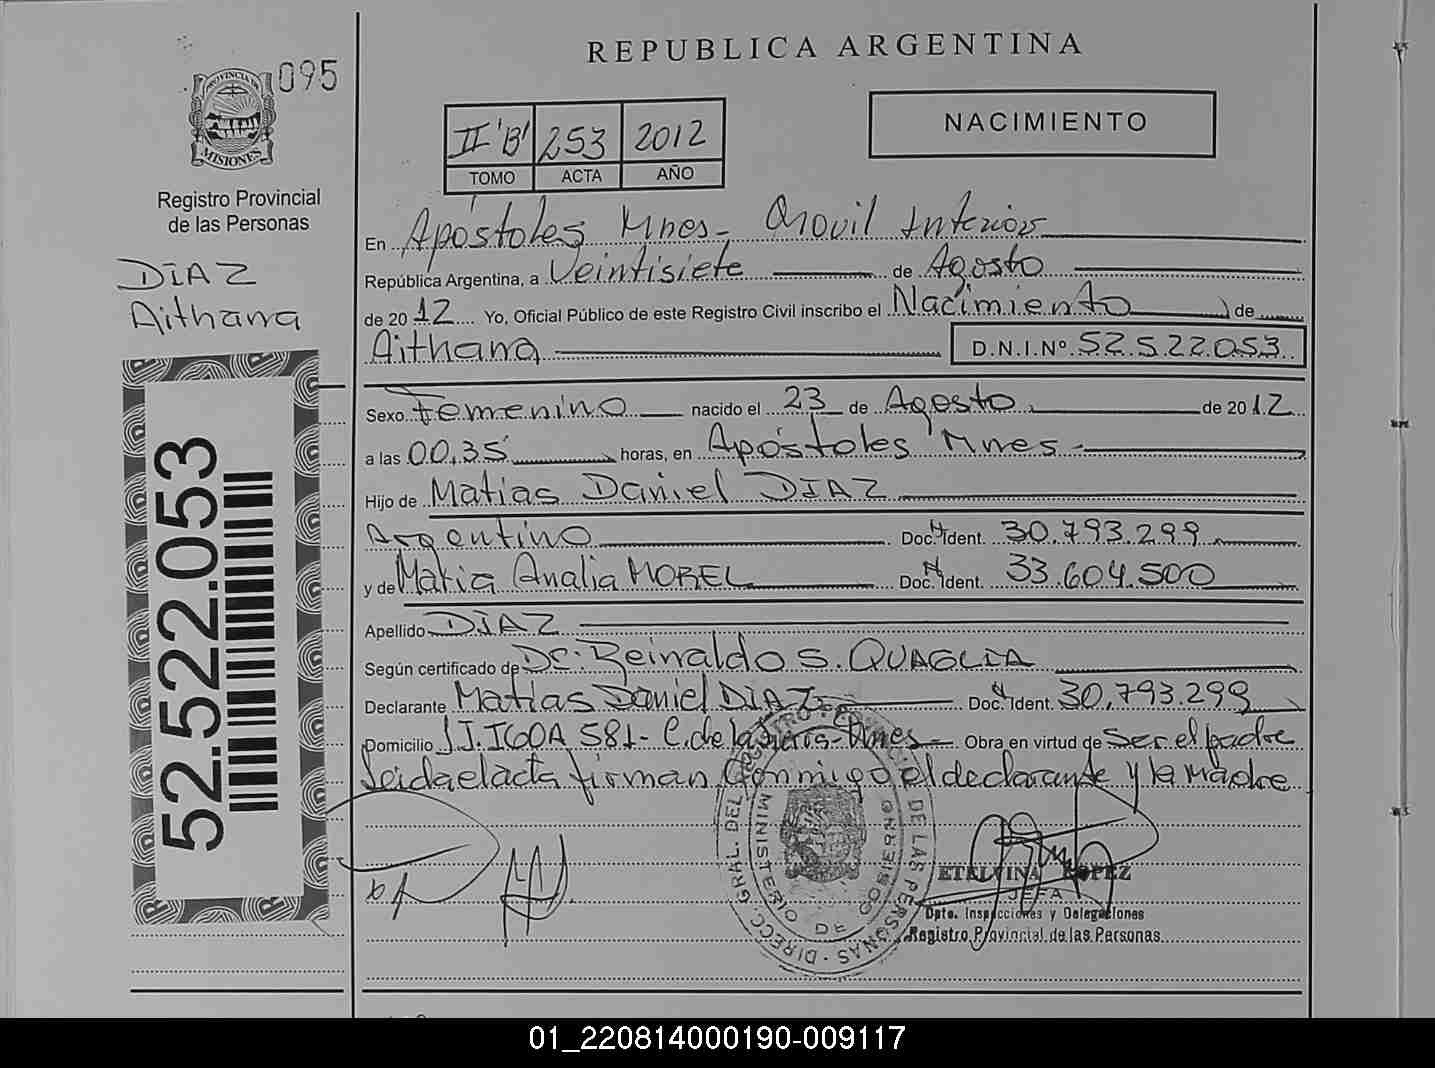 REPUBLICA ARGENTINA
095
PROVINCIA DE
MISIONES
Registro Provincial
de las Personas
DIAZ
Aithana
52.522.053
II 'B' 253 2012
TOMO ACTA AÑO
NACIMIENTO
En Apóstoles Mnes- Movil Interior
República Argentina, a Veintisiete de Agosto
de 2012 Yo, Oficial Público de este Registro Civil inscribo el Nacimiento de
Aithana D.N.I.Nº 52.522.053
Sexo Femenino nacido el 23 de Agosto de 2012
a las 00,35 horas, en Apóstoles Mnes-
Hijo de Matias Daniel DIAZ
Argentino Doc. Ident. 30.793.299
y de Maria Analia MOREL Doc. Ident. 33.604.500
Apellido DIAZ
Según certificado de Dr. Reinaldo S. QUAGLIA
Declarante Matias Daniel DIAZ Doc. Ident. 30,793.299
Domicilio J.J. IGOA 581- C. de la Sierra-Mnes- Obra en virtud de Ser el padre
Leida el acta firman Conmigo el declarante y la madre
DIRECC. GRAL. DEL REGISTRO PROVINCIAL DE LAS PERSONAS
MINISTERIO DE GOBIERNO
ETELVINA LOPEZ
JEFA
Dpto. Inspecciones y Delegaciones
Registro Provincial de las Personas
01_220814000190-009117